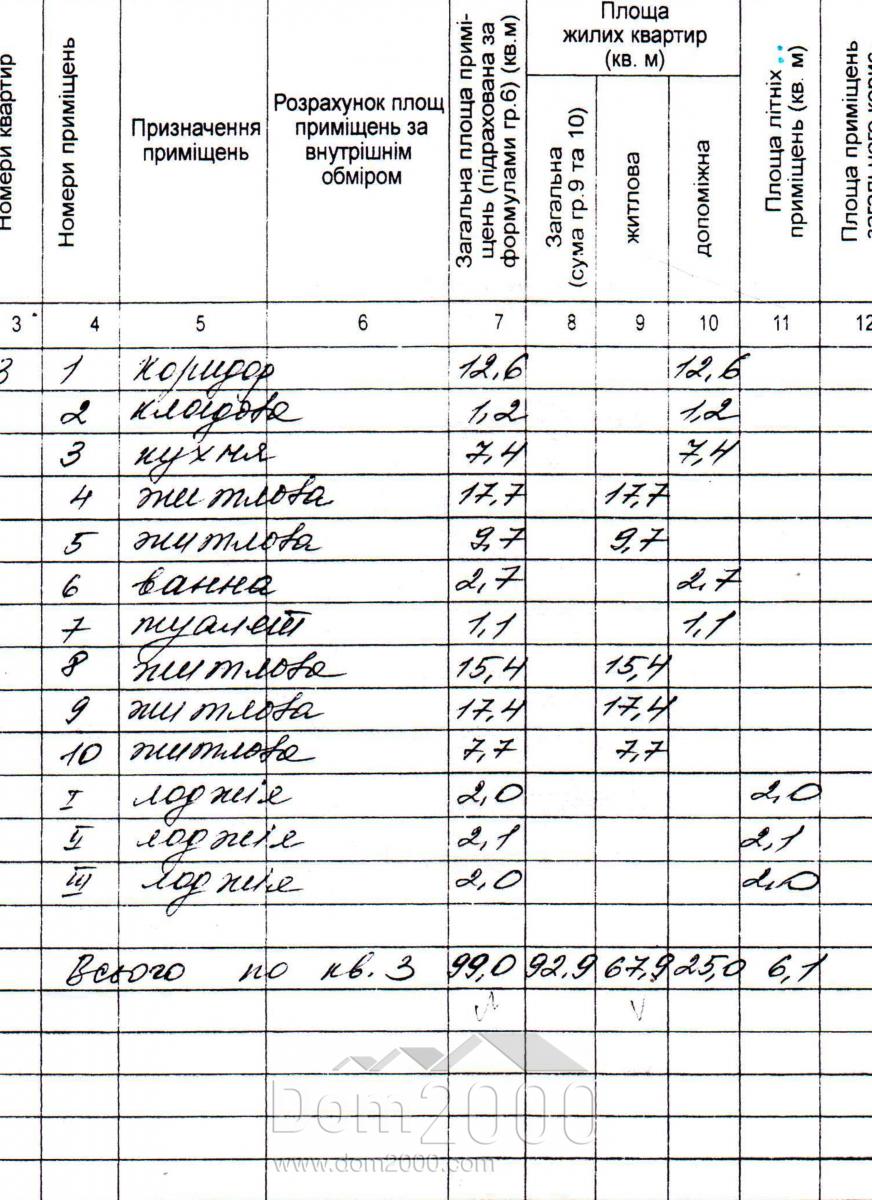 Номери квартир
Номери приміщень
Призначення
приміщень
Розрахунок площ
приміщень за
внутрішнім
обміром
Загальна площа примі-
щень (підрахована за
формулами гр.6) (кв.м)
Площа
жилих квартир
(кв. м)
Загальна
(сума гр.9 та 10)
житлова
допоміжна
Площа літніх
приміщень (кв. м)
Площа приміщень
3 4 5 6 7 8 9 10 11 12
3 1 коридор 12,6 12,6
2 кладова 1,2 1,2
3 кухня 7,4 7,4
4 житлова 17,7 17,7
5 житлова 9,7 9,7
6 ванна 2,7 2,7
7 туалет 1,1 1,1
8 житлова 15,4 15,4
9 житлова 17,4 17,4
10 житлова 7,7 7,7
I лоджія 2,0 2,0
II лоджія 2,1 2,1
III лоджія 2,0 2,0
Всього по кв. 3 99,0 92,9 67,9 25,0 6,1
Dom2000
www.dom2000.com